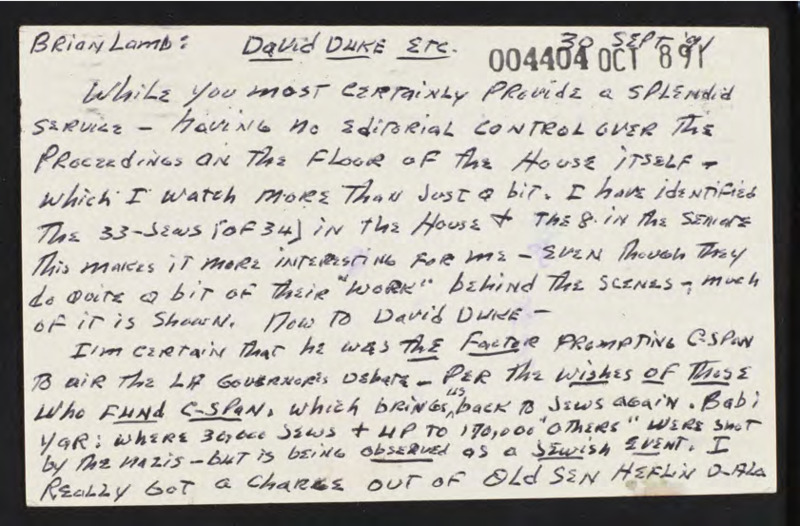 Brian Lamb: David Duke Etc. 30 Sept 91
004404 OCT 8 91
While you most certainly provide a splendid
service – having no editorial control over the
proceedings on the floor of the House itself –
which I watch more than just a bit. I have identified
the 33-Jews [of 34] in the House + the 8 in the Senate
this makes it more interesting for me – even though they
do quite a bit of their "work" behind the scenes – much
of it is shown. Now to David Duke –
I'm certain that he was the factor prompting C-SPAN
to air the LA Governor's debate – per the wishes of those
who fund C-SPAN, which brings us back to Jews again. Babi
Yar: where 30,000 Jews + up to 170,000 "others" were shot
by the nazis – but is being observed as a Jewish event. I
really got a charge out of old Sen Heflin D-Ala